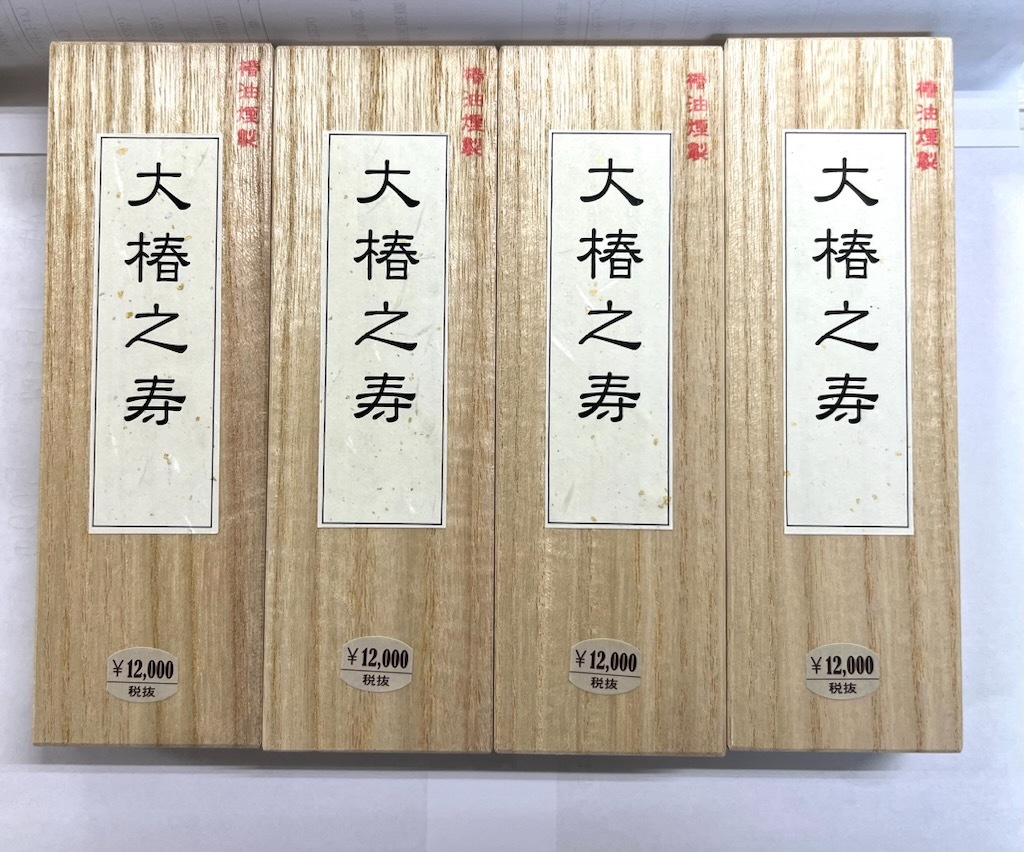 椿油煙製
大椿之寿
¥12,000
税抜
椿油煙製
大椿之寿
¥12,000
税抜
椿油煙製
大椿之寿
¥12,000
税抜
椿油煙製
大椿之寿
¥12,000
税抜